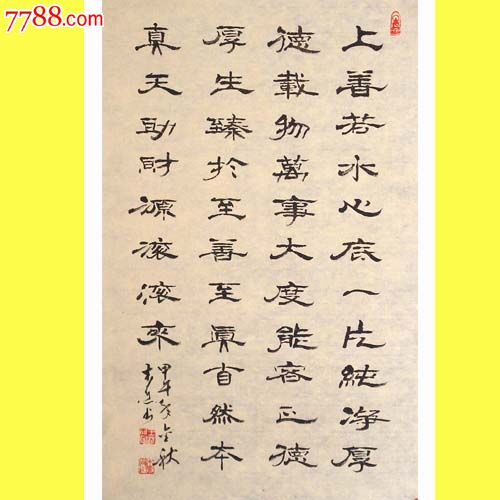 7788.com
上善若水心底一片純净厚
德載物萬事大度能容正德
厚生臻於至善至眞自然本
真天助財源滾滾來
甲午 金秋
书